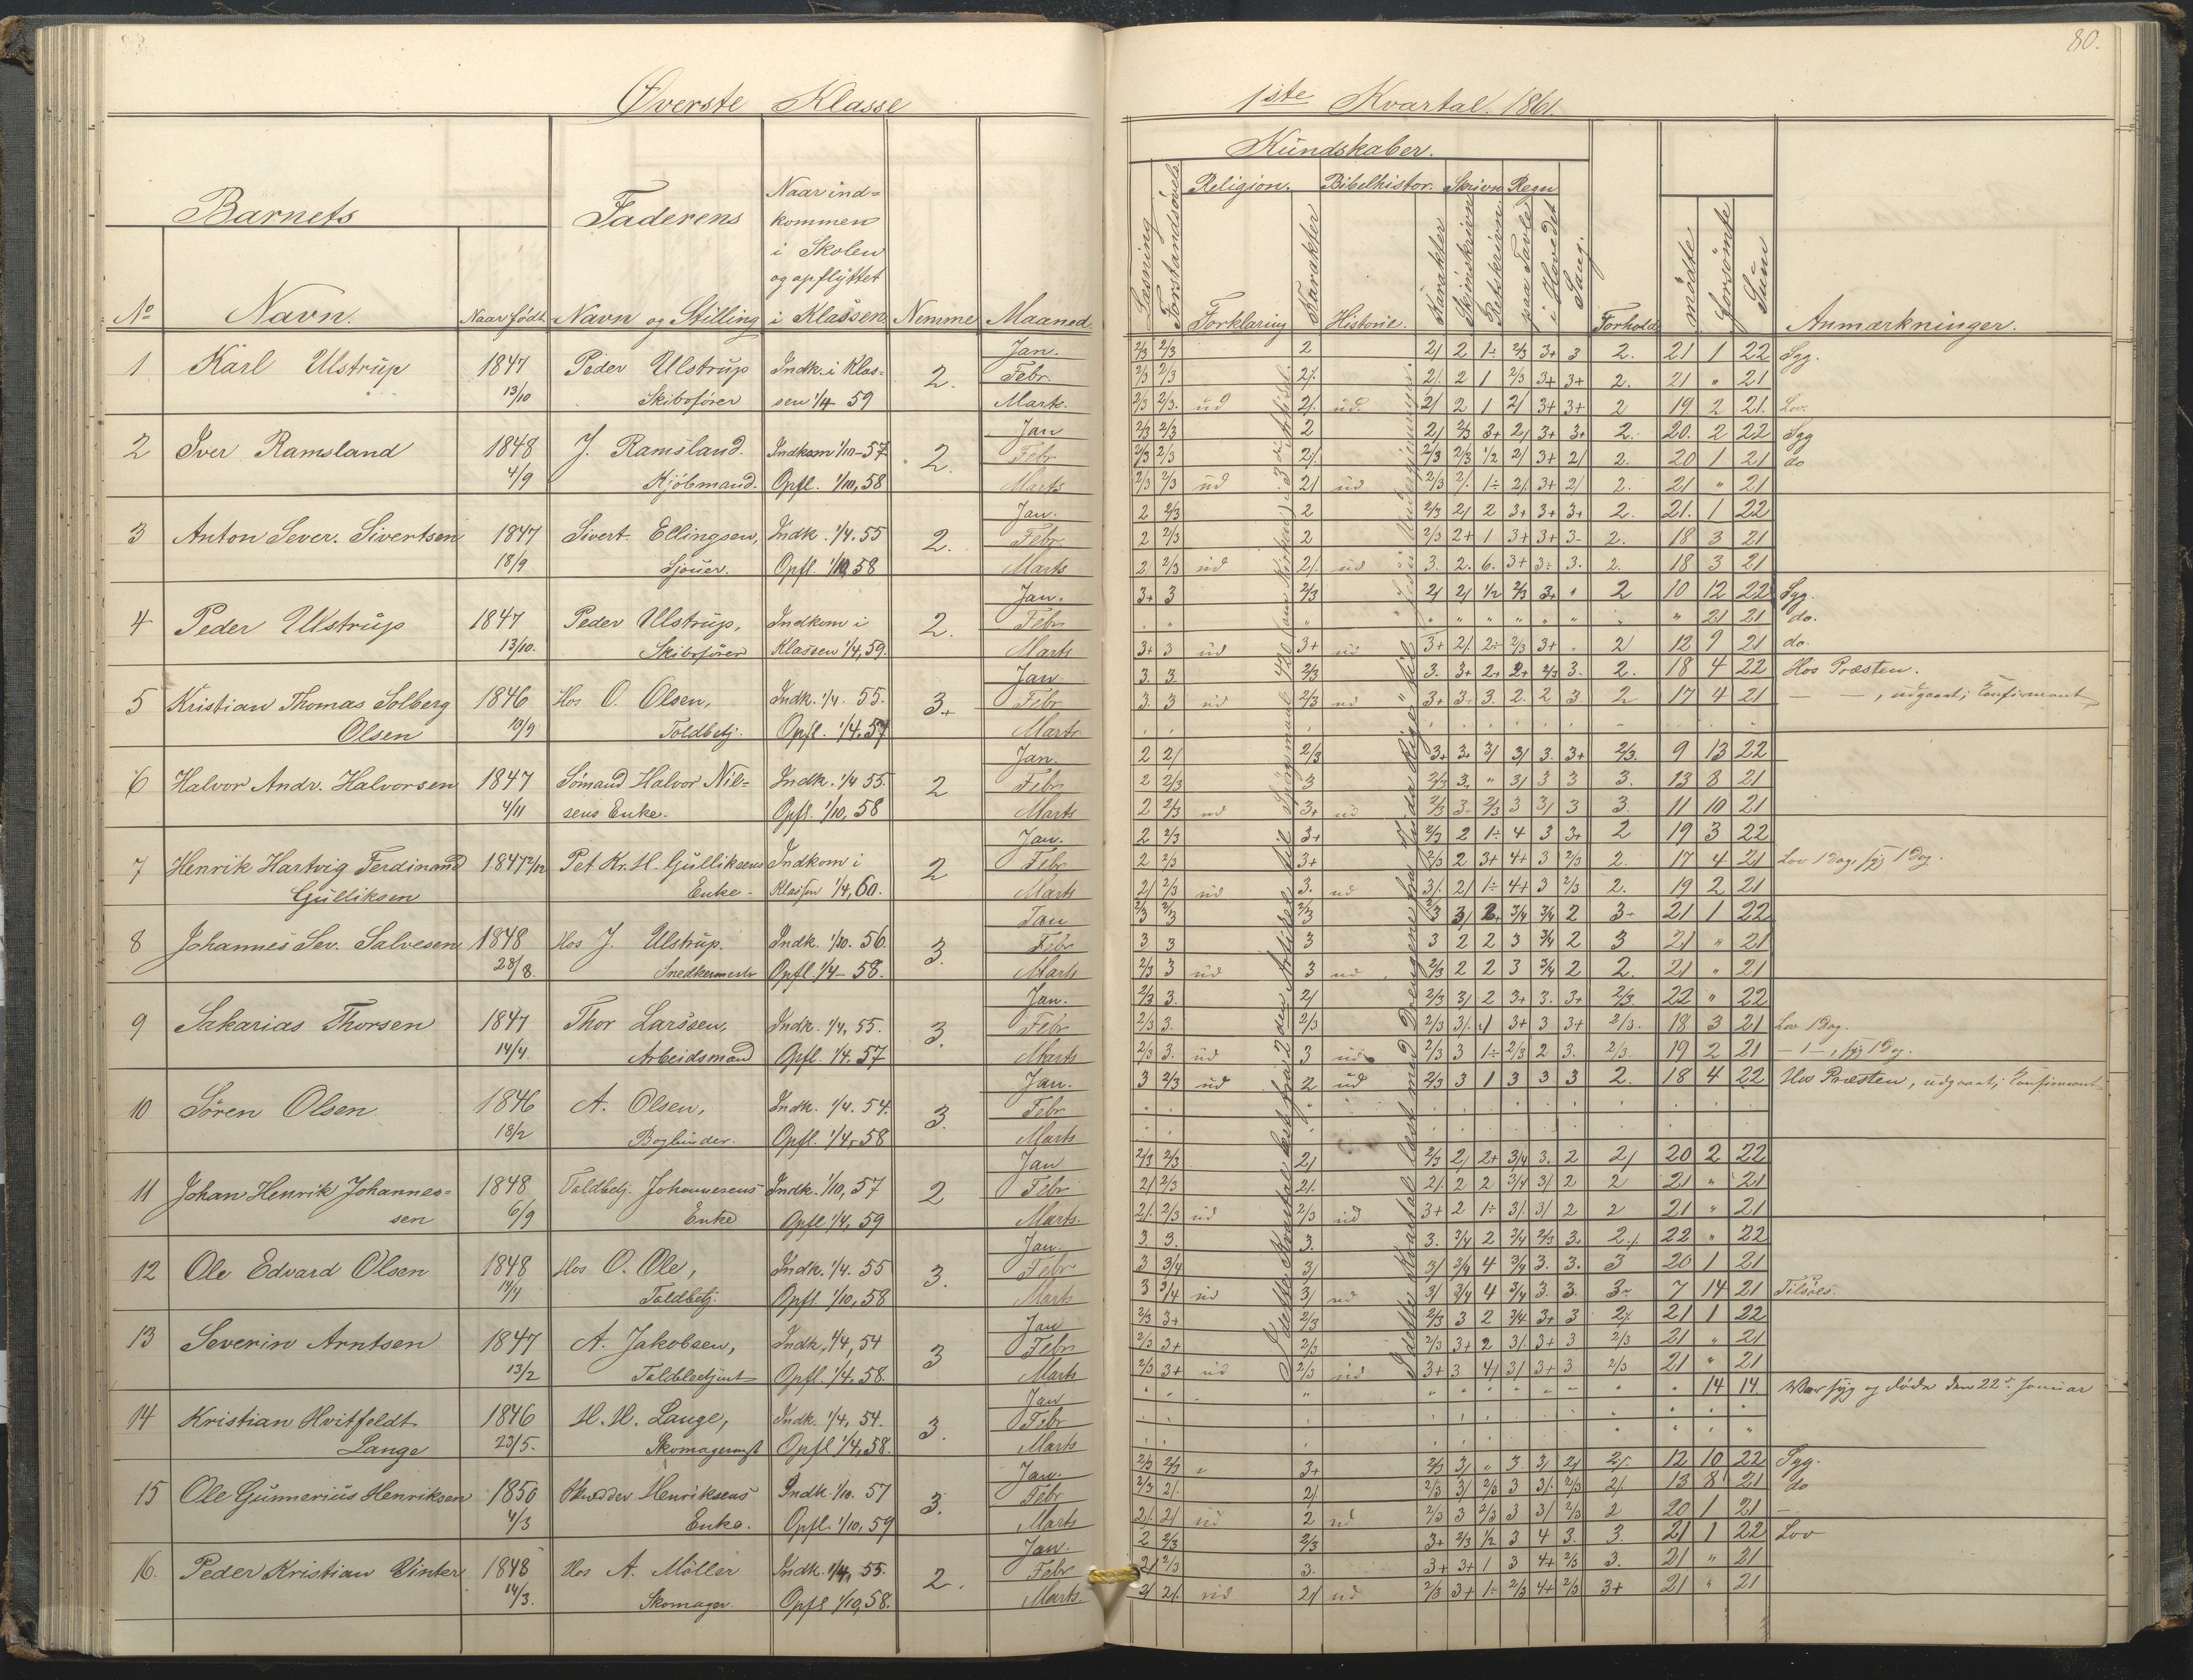 80.
Øverste Klasse
1ste Kvartal. 1861.
Barnets
Faderens
Naar ind-
kommen
i Skolen
og opflyttet
i Klassen
Nemme
Maaned
No
Navn.
Naar født
Navn og Stilling
Kundskaber.
Religion. Bibelhistor. Skrivn Regn
Læsning
Forstandsøvels.
Forklaring
Karakter
Historie.
Karakter
Skjønskrivn
Retskrivn.
paa Tavle
i Hovedet
Sang.
Forhold
mødte
forsømte
Sum
Anmærkninger.
1 Karl Ulstrup 1847 Peder Ulstrup Indk. i Klas- 2. Jan. 2/3 2/3 2 2/ 2 1÷ 2/3 3+ 3 2. 21 1 22 Syg.
13/10 Skibsfører sen 1/4 59 Febr. 2/3 2/3 2/. 2/. 2 1 2/3 3+ 3+ 2. 21 " 21
Marts. 2/3 2/3. ud 2/. ud. 2/ 2 1 2/ 3+ 3+ 2 19 2 21. Lov.
2 Iver Ramsland 1848 J. Ramsland. Indkom 1/10-57 2. Jan 2/3 2/3 2 2/ 2/3 3+ 2/ 3+ 3+ 2. 20. 2 22 Syg
4/9 Kjøbmand. Opfl. 1/10, 58 Febr 2/3 2/3 2/. 2/3 2/3 1/2 2/ 3+ 2/ 2. 20 1 21 do
Marts 2/3 2/3 ud 2/ ud 2/3 2/. 1÷ 2/. 3+ 2/ 2. 21 " 21
3 Anton Sever. Sivertsen 1847 Sivert Ellingsen, Indk. 1/4. 55 2. Jan. 2 2/3 2 2/3 2/ 2 3+ 3+ 3+ 2. 21. 1 22
18/9 Sjouer. Opfl. 1/10, 58 Febr. 2 2/3 2 2/3 2+ 1 3+ 3+ 3- 2. 18 3 21
Marts 2/ 2/3 ud 2/. ud 3. 2. 6. 3+ 3÷ 3. 2. 18 3 21
4 Peder Ulstrup 1847 Peder Ulstrup, Indkom i 2. Jan. 3+ 3 2/3 2/ 2/ 1/2 2/3 3+ " 2 10 12 22 Syg.
13/10. Skibsfører Klassen 1/4, 59. Febr " 21 21 do.
Marts 3+ 3 ud 3+ ud 3+ 2/. 2÷ 2/3 3+ . 2/ 12 9 21 do.
5 Kristian Thomas Solberg 1846 Hos O. Olsen, Indk. 1/4. 55. 3+ Jan 3. 3. 2/3 3. 3+ 2+ 2+ 2/3 3. 2. 18 4 22 Hos Præsten.
Olsen 13/9 Toldbetj. Opfl. 1/4. 57 Febr 3. 3 ud 2/3 ud 3+ 3- 3. 2. 2 3. 2 17 4 21 — —, udgaaet; Confirmant
Marts
6 Halvor Andr. Halvorsen 1847 Sømand Halvor Nil- Indk. 1/4 55. 2 Jan. 2 2/ 2/3 3+ 3+ 3/ 3/ 3. 3+ 2/3. 9 13 22
4/11 sens Enke. Opfl. 1/10, 58 Febr 2 2/3 3 2/3 3. " 3/ 3 3 3. 13 8 21
Marts 2 2/3 ud 3+ ud 2/3 3- 2/3 3 3/ 3 3. 11 10 21
7 Henrik Hartvig Ferdinand 1847 2/12 Pet. Kr. H. Gulliksens Indkom i 2 Jan. 2 2/3 3+ 2/3 2 1÷ 4 3 3+ 2 19 3 22
Gulliksen Enke. Klassen 1/4, 60. Febr 2 2/3 3+ 2/3 2 3+ 4+ 3 2/3 2. 17 4 21 Lov 1 Dag, syg 1 Dag.
Marts 2/ 2/3 ud 3. ud 3/. 2/ 1÷ 4+ 3 2/3 2. 19 2 21
8 Johannes Sev. Salvesen 1848 Hos J. Ulstrup. Indk. 1/10. 56. 3. Jan 2/3 2/3 2/3 2/3 3/ 2+ 3/4 3/4 2 3÷ 21 1 22
28/8. Snedkermestr Opfl. 1/4- 58. Febr 3 3 3 3 2 2 3 3/4 2 3 21 " 21
Marts 2/3 3 ud 3 ud 2/3 2 2 3 3/4 2 2. 21 " 21
9 Sakarias Thorsen 1847 Thor Larssen, Indk. 1/4, 55. 3. Jan. 2/3 3. 2/ 2/3 3/ 2 3+ 3. 3+ 2/3. 22 " 22
14/4. Arbeidsmand Opfl. 1/4. 57 Febr 2/3 3. 2/3 2/3 3/. 1 3+ 3 3+ 2/3. 18 3 21 Lov 1 Dag.
Marts 2/3 3. ud 3 ud 2/3 3 1÷ 2/3 2 3. 2/3. 19 2 21 —1—, syg 1 Dag.
10 Søren Olsen 1846 A. Olsen, Indk. 1/4. 54. 3. Jan. 3 2/3 ud 2 ud 2/3 3 1 3 3 3 2. 18 4 22 Hos Præsten, udgaaet; Confirmant
18/2 Bogbinder. Opfl. 1/4, 58 Febr
Marts
11 Johan Henrik Johannes- 1848 Toldbetj. Johannesens Indk. 1/10, 57 2 Jan 2/3 2/3 2/ 2/3 2/ 2+ 3/4 3. 2 2/ 20 2 22
sen 6/9 Enke Opfl. 1/4, 59 Febr 2/ 2/3 2/. 2/ 2 2 3/4 3/ 2 2 21 " 21
Marts. 2/. 2/3 ud 2/3 ud 3+ 2 1÷ 3/. 3/ 2 2 21 " 21
12 Ole Edvard Olsen 1848 Hos O. Ole, Indk. 1/4. 55 3. Jan. 3. 3. 3. 3. 3/4 2 3/4 2/3 3+ 2./ 22 " 22
14/4 Toldbetj. Opfl. 1/10, 58 Febr 3 3/4 3/ 3/ 3/4 4 3/4 3. 3. 3 20 1 21
Marts 3 3/4 ud 3/ ud 3/ 3/4 4 3/4 3. 3. 3÷ 7 14 21 Tilsøes.
13 Severin Arntsen 1847 A. Jakobsen, Indk. 1/4, 54 3 Jan 2/3 3+ 2/3 2/3 3 2 3/4 3+ 3 2/. 21 1 22
13/2 Toldbetjent Opfl. 1/4. 58. Febr 2/3 3+ 2/3 2/3 3+ 2 3/. 3+ 3 2/3 21 " 21
Marts 2/3 3+ ud 2/3 ud 3+ 3 4/ 3/ 3+ 3 2/3 21 " 21
14 Kristian Hvitfeldt 1846 H. H. Lange, Indk. 1/4, 54. 3. Jan " 14 14 Var syg og døde den 22de Januar
Lange 23/5. Opfl 1/4, 58. Febr
Marts
15 Ole Gunnerius Henriksen 1850 Henriksens Indk. 1/10. 57 3. Jan. 2/3 2/3 " 3+ 2/3 3/ " 3. 3/ 2/ 2/. 12 10 22 Syg.
4/3 Enke. Opfl. 1/10, 59 Febr 2/3 2/. 2/. 2/3 3/ 2/3 3 3/. 2/3 2/. 13 8 21 do
Marts 2/. 2/ ud 2 ud 2/3 3 2/3 3 3/ 2/3 2 20 1 21 —
16. Peder Kristian Vinter 1848 Hos A. Möller Indk. 1/4, 55. 2. Jan. 2 2/3 2/3 3+ 2/3 1/2 3 4 3. 3. 21 1 22 Lov
14/3. Skomager. Opfl 1/10, 58. Febr 2/ 2/3 3. 3+ 3+ 1 3 4+ 2/3 3. 21 " 21
Marts. 2/ 2/. ud 2/ ud 2/3 3+ 1÷ 2/3 4+ 2/3 3+ 21 " 21
I dette Kvartal læst fra 2den Artikel til Spørgsmaal 420
I dette Kvartal læst med Drengene fra Juda Rige til Jesu Undergjerninger.